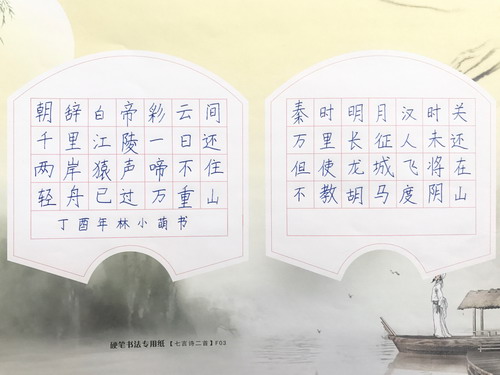 朝辞白帝彩云间
千里江陵一日还
两岸猿声啼不住
轻舟已过万重山
丁酉年林小萌书
秦时明月汉时关
万里长征人未还
但使龙城飞将在
不教胡马度阴山
硬笔书法专用纸【七言诗二首】F03